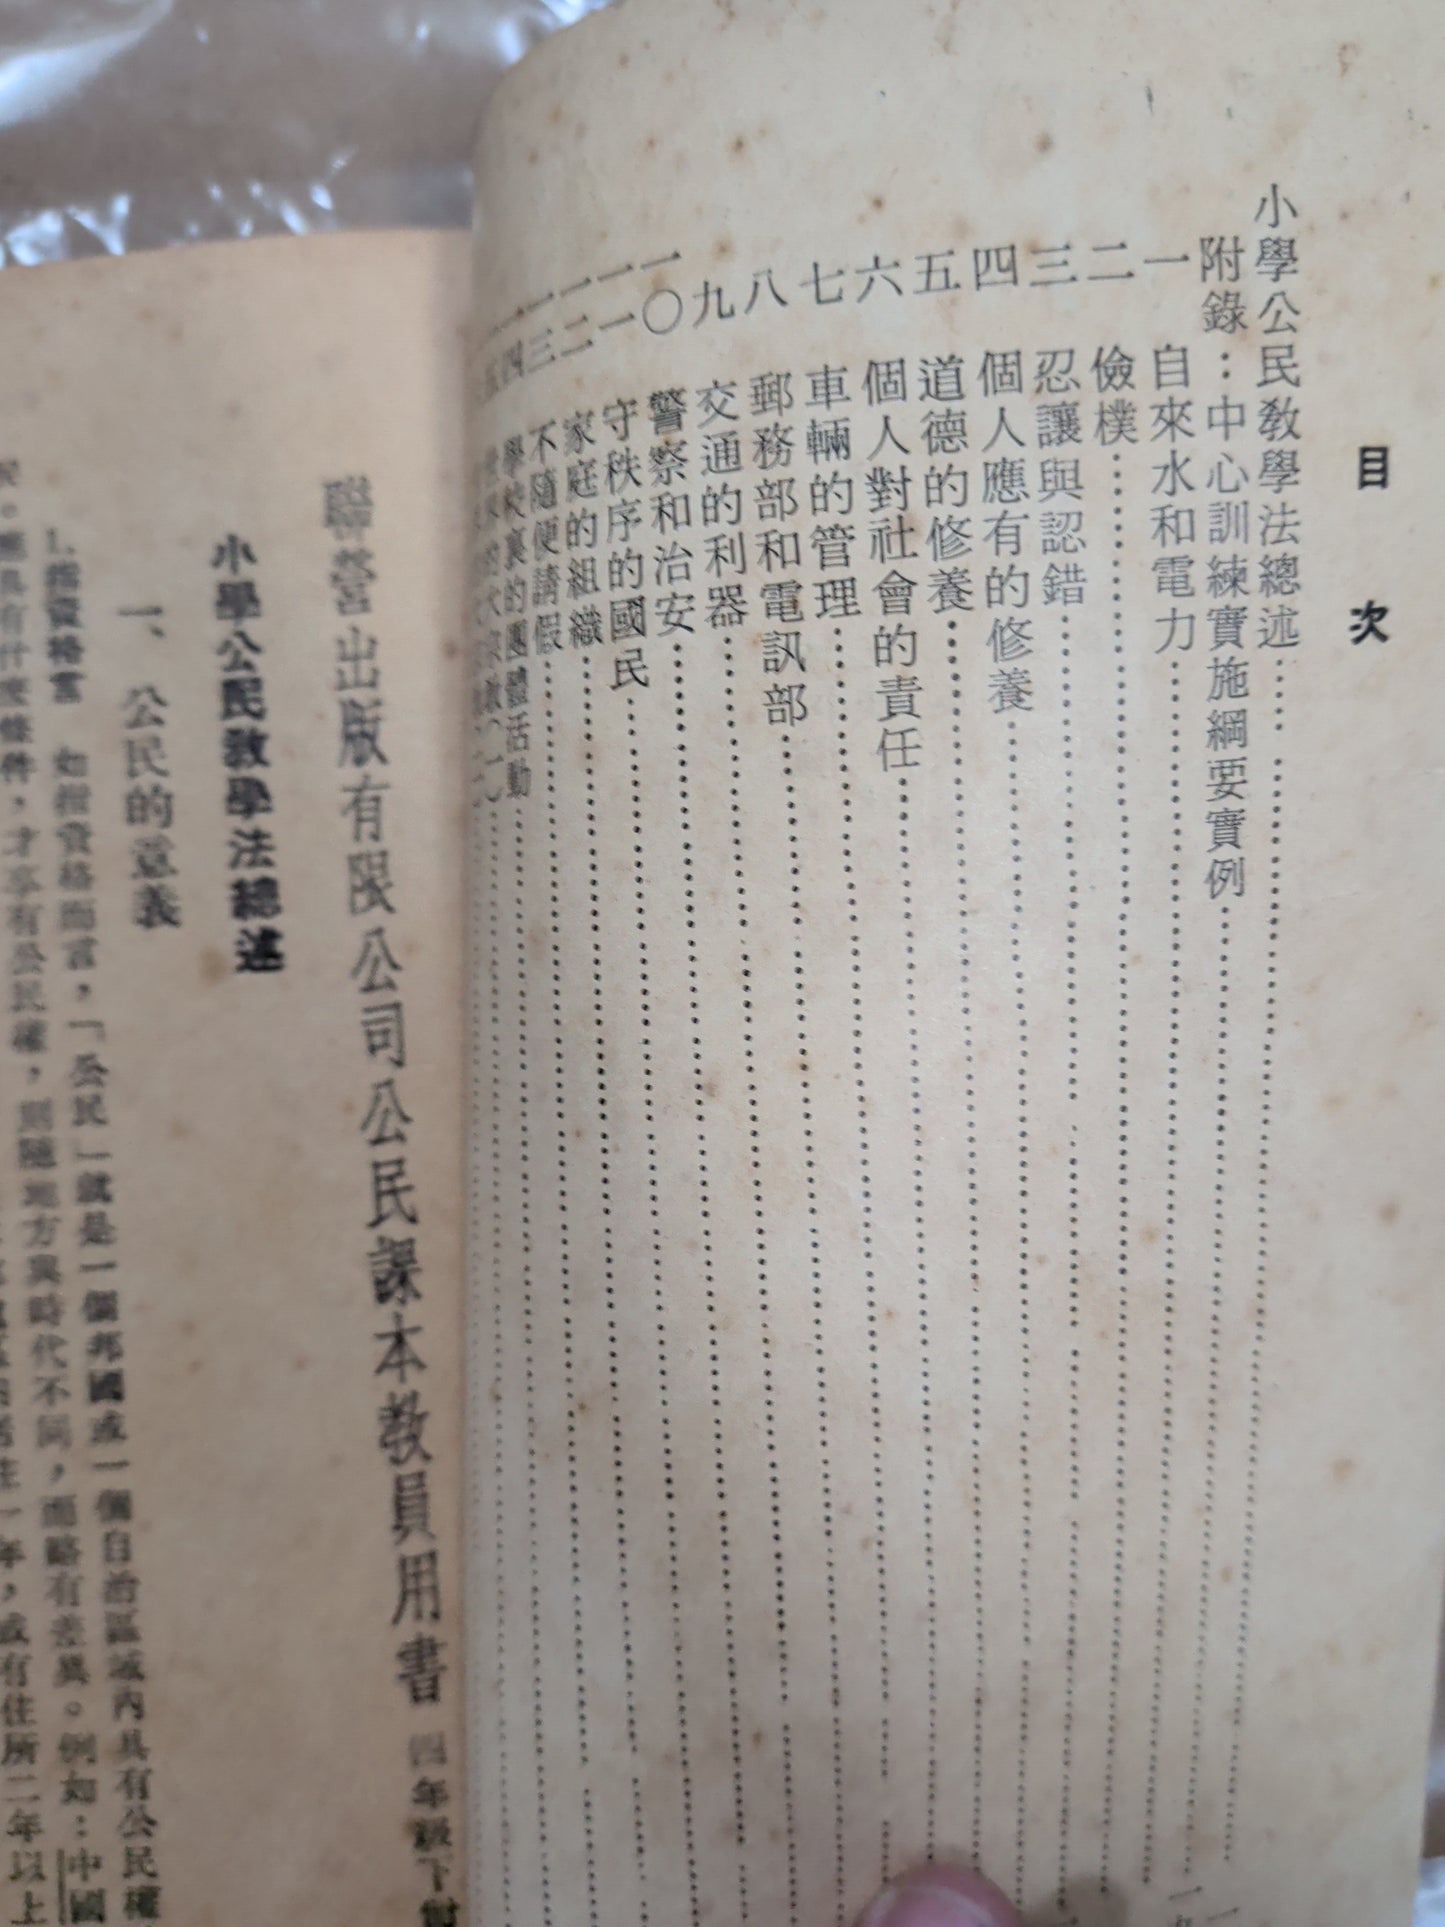 目次
小學公民教學法總述
附錄：中心訓練實施綱要實例
一 自來水和電力
二 儉樸
三 忍讓與認錯
四 個人應有的修養
五 道德的修養
六 個人對社會的責任
七 車輛的管理
八 郵務部和電訊部
九 交通的利器
一〇 警察和治安
一一 守秩序的國民
一二 家庭的組織
一三 不隨便請假
一四 學校裏的團體活動
聯營出版有限公司公民課本教員用書 四年級下
小學公民教學法總述
一、公民的意義
1.指資格言 如指資格而言，「公民」就是一個邦國或一個自治區域內具有公民權
件，才享有公民權，則隨地方與時代不同，而略有差異。例如：中國
年，或有住所二年以上